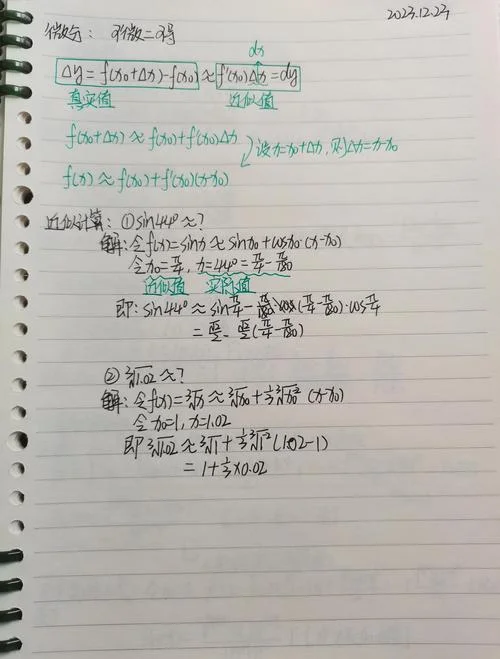 2023.12.23
微分: 可微=可导
dx
Δy = f(x₀+Δx)-f(x₀) ≈ f'(x₀)Δx = dy
真实值 近似值
f(x₀+Δx) ≈ f(x₀)+f'(x₀)Δx
设x=x₀+Δx, 则Δx=x-x₀
f(x) ≈ f(x₀)+f'(x₀)(x-x₀)
近似计算: ①sin44°≈?
解: 令f(x)=sinx≈sinx₀+cosx₀·(x-x₀)
令x₀=π/4, x=44°=π/4-π/180
近似值 实际值
即: sin44°≈sinπ/4-(π/4-π/180)·cosπ/4
=√2/2-√2/2(π/4-π/180)
②∛1.02≈?
解: 令f(x)=∛x≈∛x₀+1/3∛x₀²(x-x₀)
令x₀=1, x=1.02
即∛1.02≈∛1+1/3∛1²(1.02-1)
=1+1/3×0.02